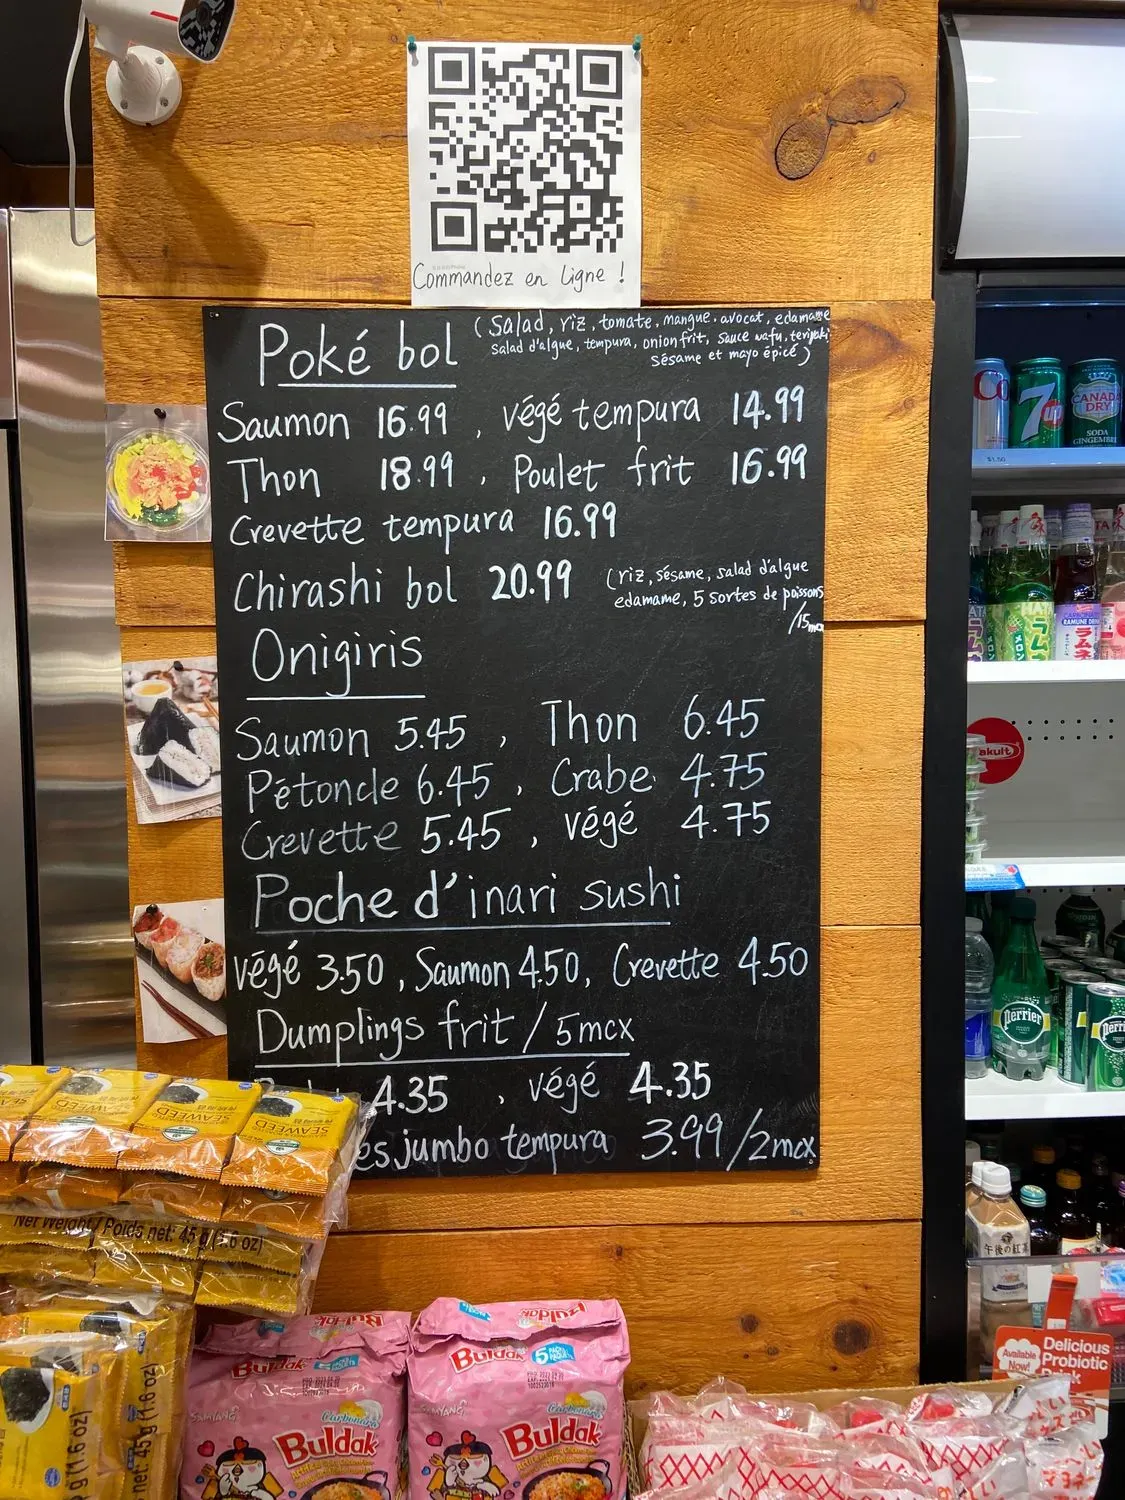 Commandez en Ligne !
Poké bol
(Salad, riz, tomate, mangue, avocat, edamame
salad d'algue, tempura, onion frit, sauce wafu, teriyaki
sésame et mayo épicé)
Saumon 16.99 , végé tempura 14.99
Thon 18.99 , Poulet frit 16.99
Crevette tempura 16.99
Chirashi bol 20.99
(riz, sésame, salad d'algue
edamame, 5 sortes de poissons
/15mcx
Onigiris
Saumon 5.45 , Thon 6.45
Pétoncle 6.45 , Crabe 4.75
Crevette 5.45 , végé 4.75
Poche d'inari sushi
végé 3.50 , Saumon 4.50, Crevette 4.50
Dumplings frit / 5mcx
4.35 , végé 4.35
es jumbo tempura 3.99/2mcx
7up
CANADA
DRY
SODA
GINGEMBRE
$1.50
RAMUNE
ラムネ
メロン
akult
Perrier
Perrier
午後の紅茶
Available
Now!
Delicious
Probiotic
SEAWEED
SEAWEED
SEAWEED
Net Weight / Poids net: 45 g (1.6 oz)
net: 45 g (1.6 oz)
g (1.6 oz)
Buldak
Buldak
SAMYANG
Carbonara
Buldak
Buldak
Buldak
5
SAMYANG
Carbonara
Buldak